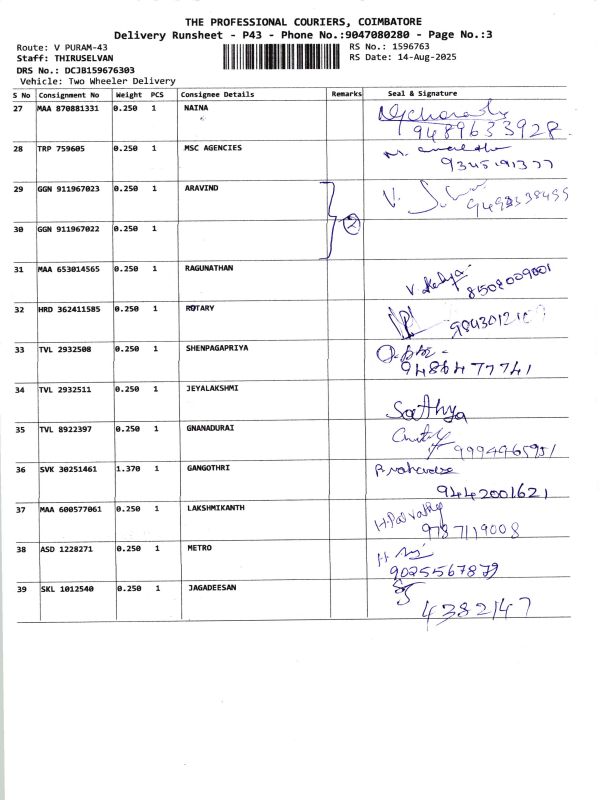 THE PROFESSIONAL COURIERS, COIMBATORE
Delivery Runsheet - P43 - Phone No.:9047080280 - Page No.:3
Route: V PURAM-43
RS No.: 1596763
Staff: THIRUSELVAN
RS Date: 14-Aug-2025
DRS No.: DCJB159676303
Vehicle: Two Wheeler Delivery
S No Consignment No Weight PCS Consignee Details Remarks Seal & Signature
27 MAA 870881331 0.250 1 NAINA
9489633928
28 TRP 759605 0.250 1 MSC AGENCIES
29 GGN 911967023 0.250 1 ARAVIND
30 GGN 911967022 0.250 1 2
31 MAA 653014565 0.250 1 RAGUNATHAN
8508009001
32 HRD 362411585 0.250 1 ROTARY
33 TVL 2932508 0.250 1 SHENPAGAPRIYA
9486477741
34 TVL 2932511 0.250 1 JEYALAKSHMI
Sathya
35 TVL 8922397 0.250 1 GNANADURAI
9994965951
36 SVK 30251461 1.370 1 GANGOTHRI
9442001621
37 MAA 600577061 0.250 1 LAKSHMIKANTH
H.Parvathy
9787119008
38 ASD 1228271 0.250 1 METRO
9025567879
39 SKL 1012540 0.250 1 JAGADEESAN
4382147